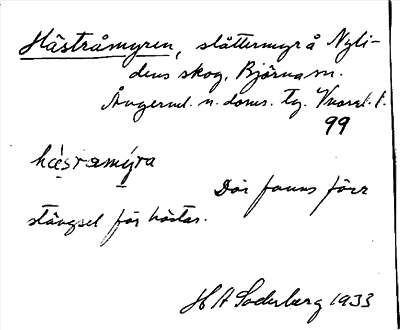 Hästråmyren, slåttermyr å Nyli-
dens skog, Björna sn.
Ångerml. n. doms. tg.
99
Där fanns förr
stängsel för hästar.
H A Söderberg 1933